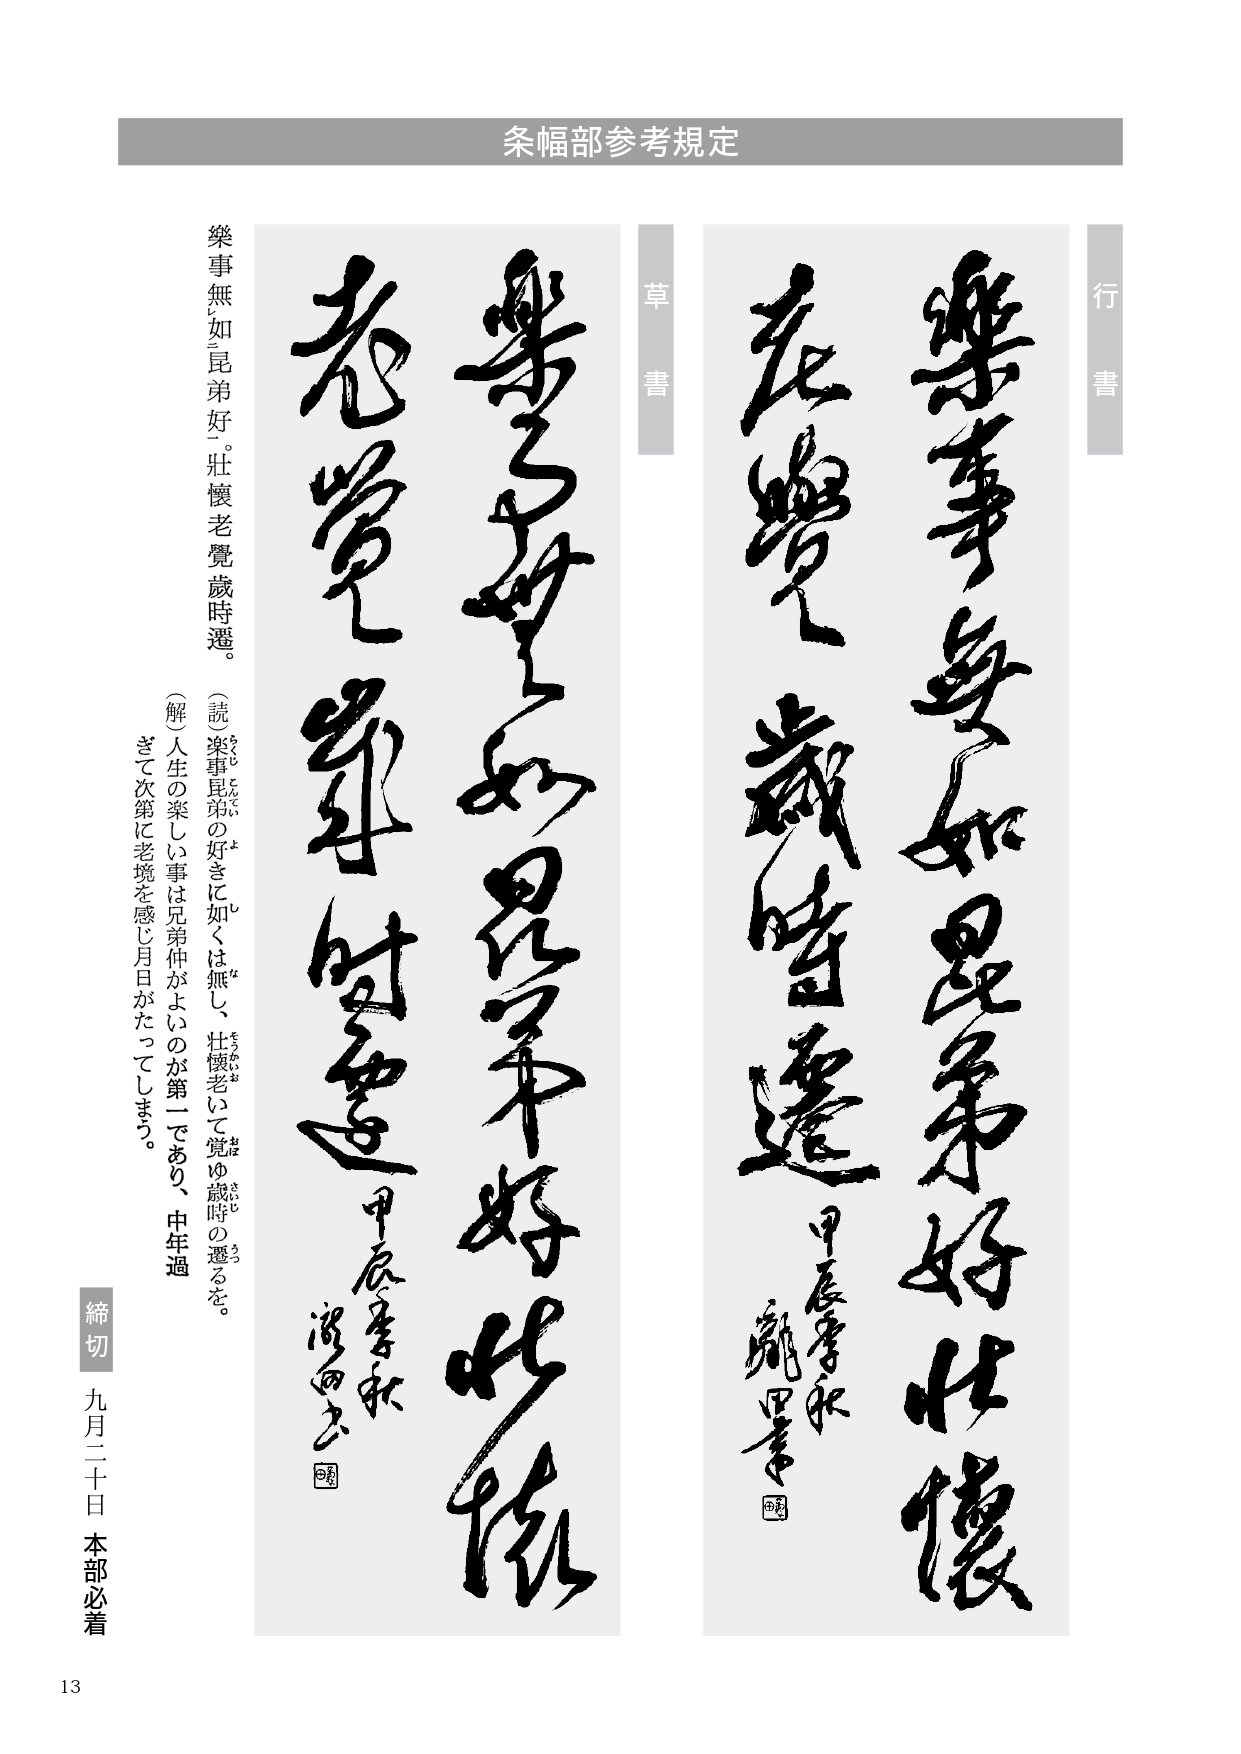 条幅部参考規定
行書
樂事無如昆弟好壯懷
老覺歳時遷
甲辰季秋
龍田書
草書
樂事無如昆弟好壯懷
老覺歳時遷
甲辰季秋
瀧田書
樂事無㆑如㆓昆弟好㆒。壯懷老覺歳時遷。
（読）楽事昆弟の好きに如くは無し、壮懐老いて覚ゆ歳時の遷るを。
（解）人生の楽しい事は兄弟仲がよいのが第一であり、中年過
ぎて次第に老境を感じ月日がたってしまう。
締切 九月二十日 本部必着
13